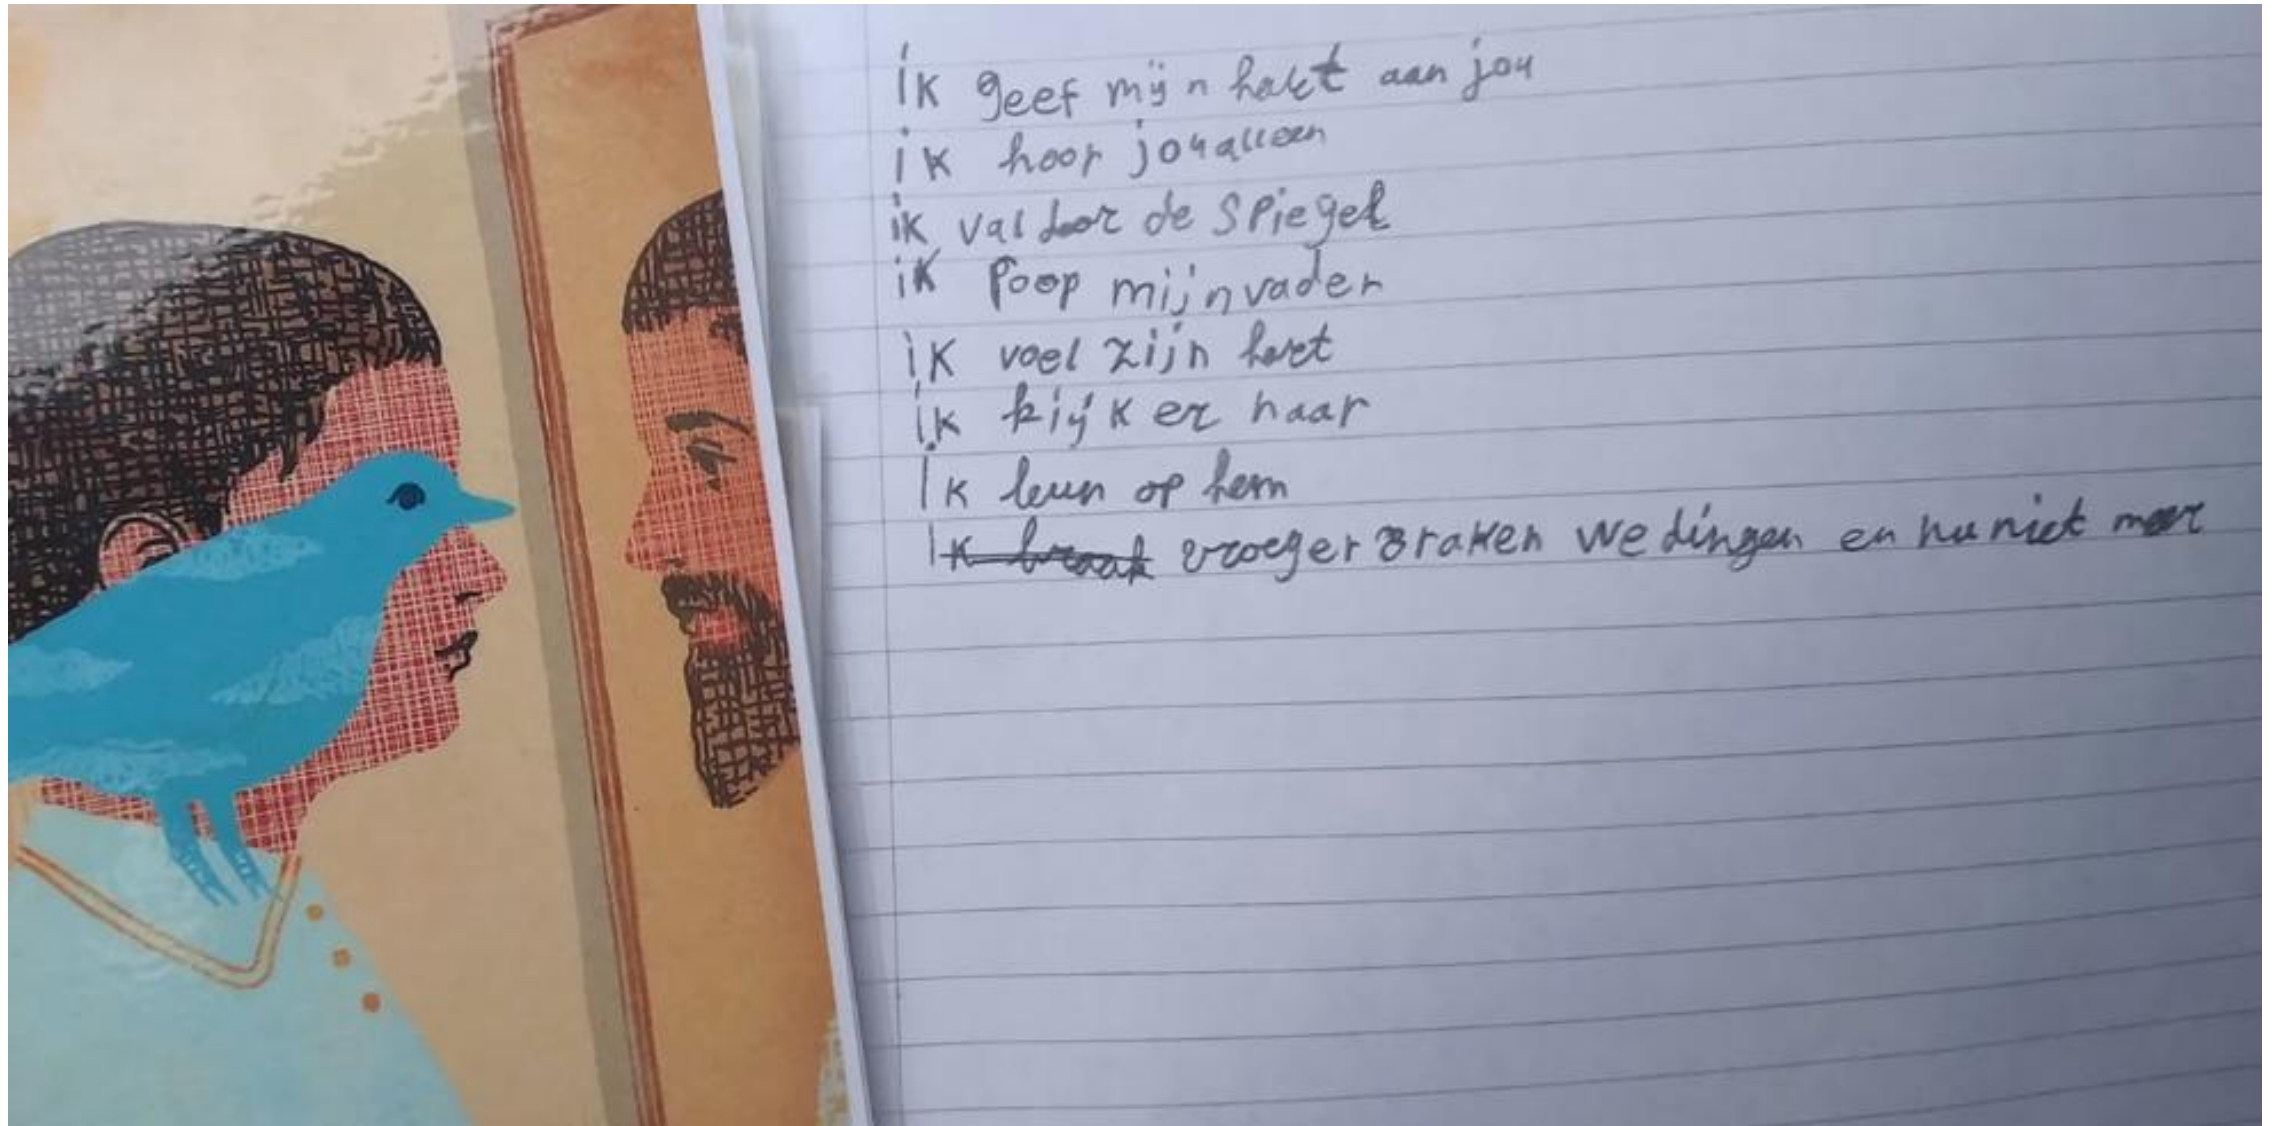 ik geef mijn hart aan jou
ik hoor jou alleen
ik val door de Spiegel
ik Poop mijn vader
ik voel zijn hart
ik kijk er naar
ik leun op hem
Ik braak vroeger Braken we dingen en nu niet meer